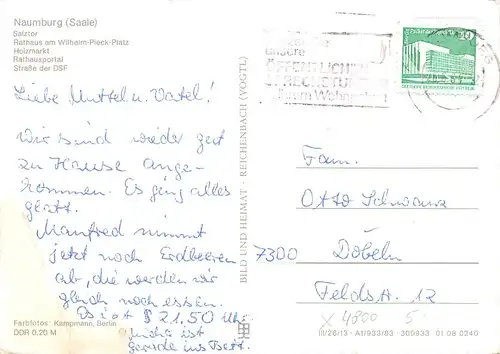 Naumburg (Saale)
Salztor
Rathaus am Wilhelm-Pieck-Platz
Holzmarkt
Rathausportal
Straße der DSF
Liebe Muttel u. Vatel!
Wir sind wieder gut
zu Hause ange-
kommen. Es ging alles
glatt.
Manfred nimmt
jetzt noch Erdbeeren
ab, die werden wir
gleich noch essen.
Es ist 21.50 Uhr
ins Bett.
Farbfotos: Kampmann, Berlin
DDR 0,20 M
BILD UND HEIMAT · REICHENBACH (VOGTL)
unsere
ÖFFENTLICHEN
SPRECHSTUNDEN
Ihrem Wohngebiet
10
DEUTSCHE DEMOKRATISCHE REPUBLIK
Fam.
Otto Schwarz
7300 Döbeln
Feldstr. 12
x 4800 5.-
III/26/13 · A1/933/83 · 300933 01 08 0240